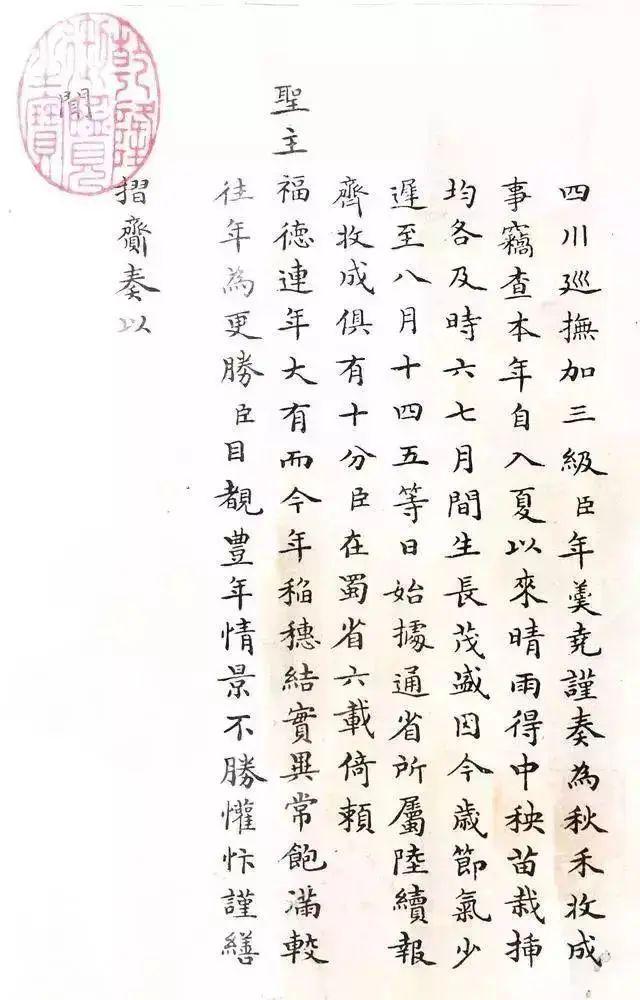 四川廵撫加三級臣年羹堯謹奏為秋禾收成
事竊查本年自入夏以來晴雨得中秧苗栽插
均各及時六七月間生長茂盛因今歲節氣少
遲至八月十四五等日始據通省所屬陸續報
齊收成俱有十分臣在蜀省六載倚賴
聖主福德連年大有而今年稻穗結實異常飽滿較
往年為更勝臣目覩豊年情景不勝懽忭謹繕
摺齎奏以
聞
乾隆御覽之寶